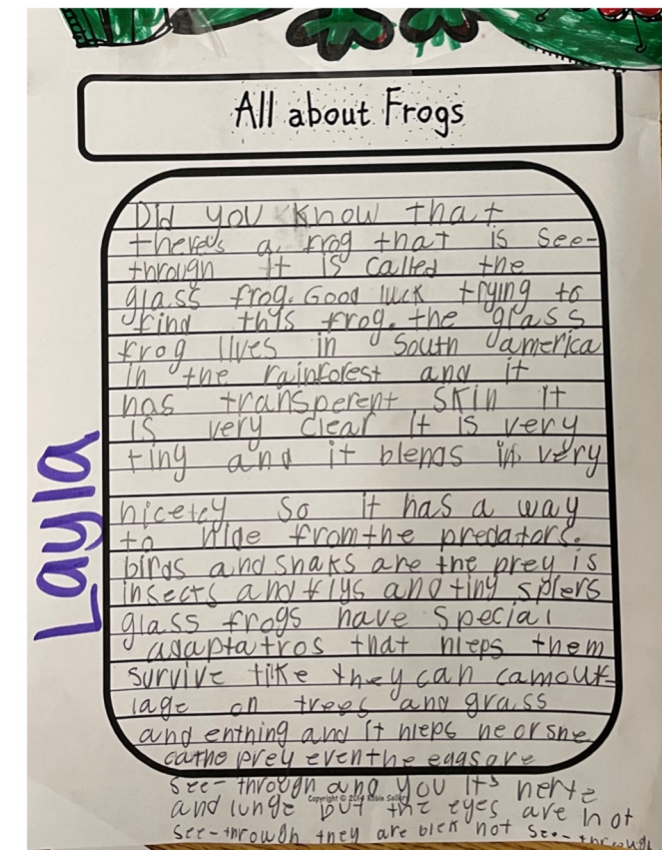 All about Frogs
Did you know that
there's a frog that is see-
through it is called the
glass frog. Good luck trying to
find this frog. the glass
frog lives in South america
in the rainforest and it
has transperent skin it
is very clear it is very
tiny and it blends in very
nicetey so it has a way
to hide from the predators.
birds and snaks are the prey is
insects and flys and tiny spiers
glass frogs have special
adaptatros that hleps them
survive like they can camouf-
lage on trees and grass
and entning and it hleps he or she
cathe prey even the eggs are
see-through and you it's herte
and lunge but the eyes are not
see-through they are blck not see-through
Layla
Copyright © 2014 Robin Sellers